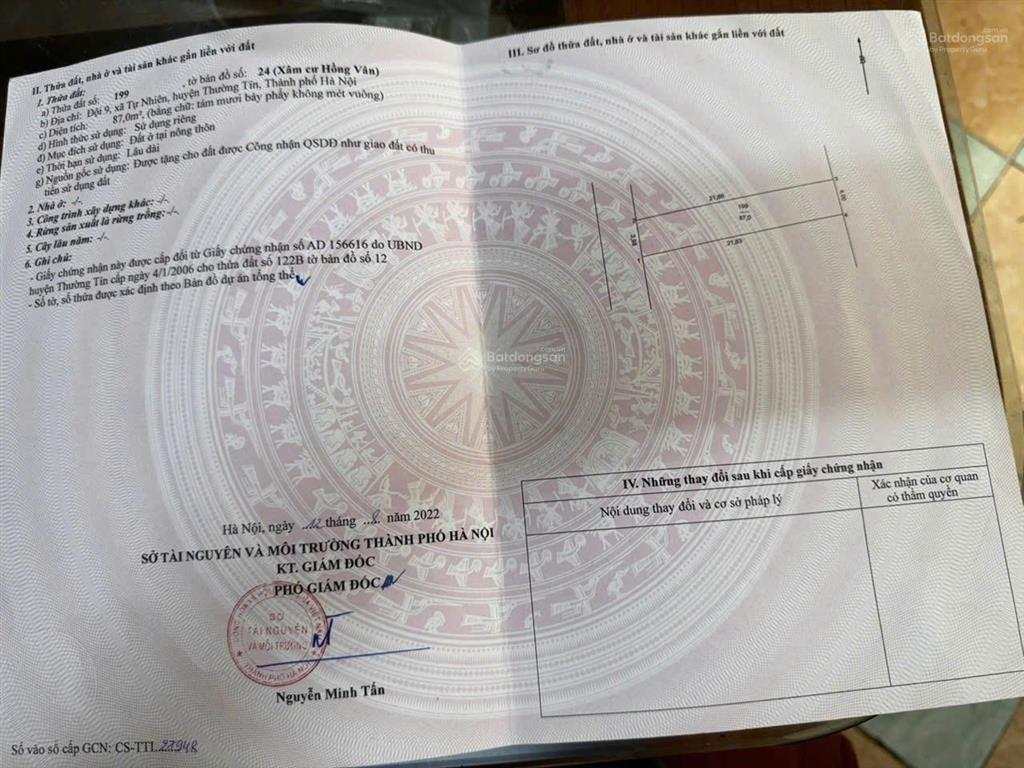 II. Thửa đất, nhà ở và tài sản khác gắn liền với đất
1. Thửa đất:
a) Thửa đất số: 199 , tờ bản đồ số: 24 (Xâm cư Hồng Vân)
b) Địa chỉ: Đội 9, xã Tự Nhiên, huyện Thường Tín, Thành phố Hà Nội
c) Diện tích: 87,0m², (bằng chữ: tám mươi bảy phẩy không mét vuông)
d) Hình thức sử dụng: Sử dụng riêng
đ) Mục đích sử dụng: Đất ở tại nông thôn
e) Thời hạn sử dụng: Lâu dài
g) Nguồn gốc sử dụng: Được tặng cho đất được Công nhận QSDĐ như giao đất có thu
tiền sử dụng đất
2. Nhà ở: -/-
3. Công trình xây dựng khác: -/-
4. Rừng sản xuất là rừng trồng: -/-
5. Cây lâu năm: -/-
6. Ghi chú:
- Giấy chứng nhận này được cấp đổi từ Giấy chứng nhận số AD 156616 do UBND
huyện Thường Tín cấp ngày 4/1/2006 cho thửa đất số 122B tờ bản đồ số 12
- Số tờ, số thửa được xác định theo Bản đồ dự án tổng thể
Hà Nội, ngày 12 tháng 8 năm 2022
SỞ TÀI NGUYÊN VÀ MÔI TRƯỜNG THÀNH PHỐ HÀ NỘI
KT. GIÁM ĐỐC
PHÓ GIÁM ĐỐC
SỞ
TÀI NGUYÊN
VÀ MÔI TRƯỜNG
THÀNH PHỐ HÀ NỘI
Nguyễn Minh Tấn
Số vào sổ cấp GCN: CS-TTI
III. Sơ đồ thửa đất, nhà ở và tài sản khác gắn liền với đất
B
2
21,66
3
3,98
199
87,0
4,00
1
21,83
4
IV. Những thay đổi sau khi cấp giấy chứng nhận
Nội dung thay đổi và cơ sở pháp lý
Xác nhận của cơ quan
có thẩm quyền
Batdongsan.com.vn
by PropertyGuru
Batdongsan.com.vn
by PropertyGuru